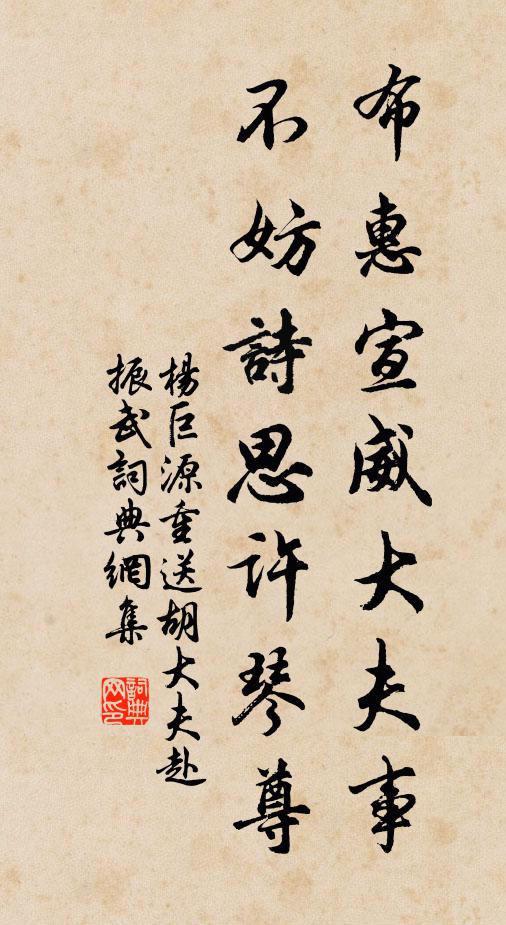 布惠宣威大夫事
不妨詩思許琴尊
楊巨源重送胡大夫赴
振武詞典網集
詞典網印